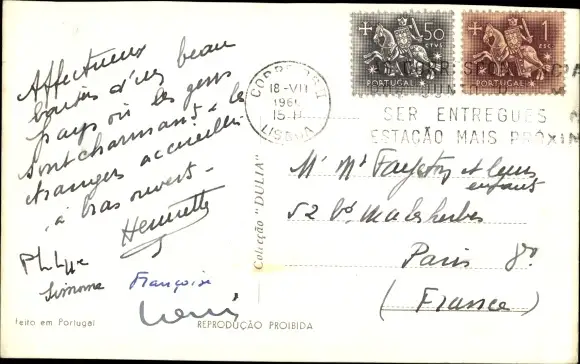 Affectueux
baisers d'un beau
pays où les gens
sont charmants & les
étrangers accueillis
à bras ouverts -
Henriette
Philippe
Simone Françoise
feito em Portugal
REPRODUÇÃO PROIBIDA
Colecção "DULIA"
50
CTVS
PORTUGAL
1
ESC
PORTUGAL
CORREIOS
18-VII
196
15-
LISBOA
SER ENTREGUES
ESTAÇÃO MAIS PRÓXIM
Mr Me et leurs
enfants
52 bd. Malesherbes
Paris 8e.
(France)